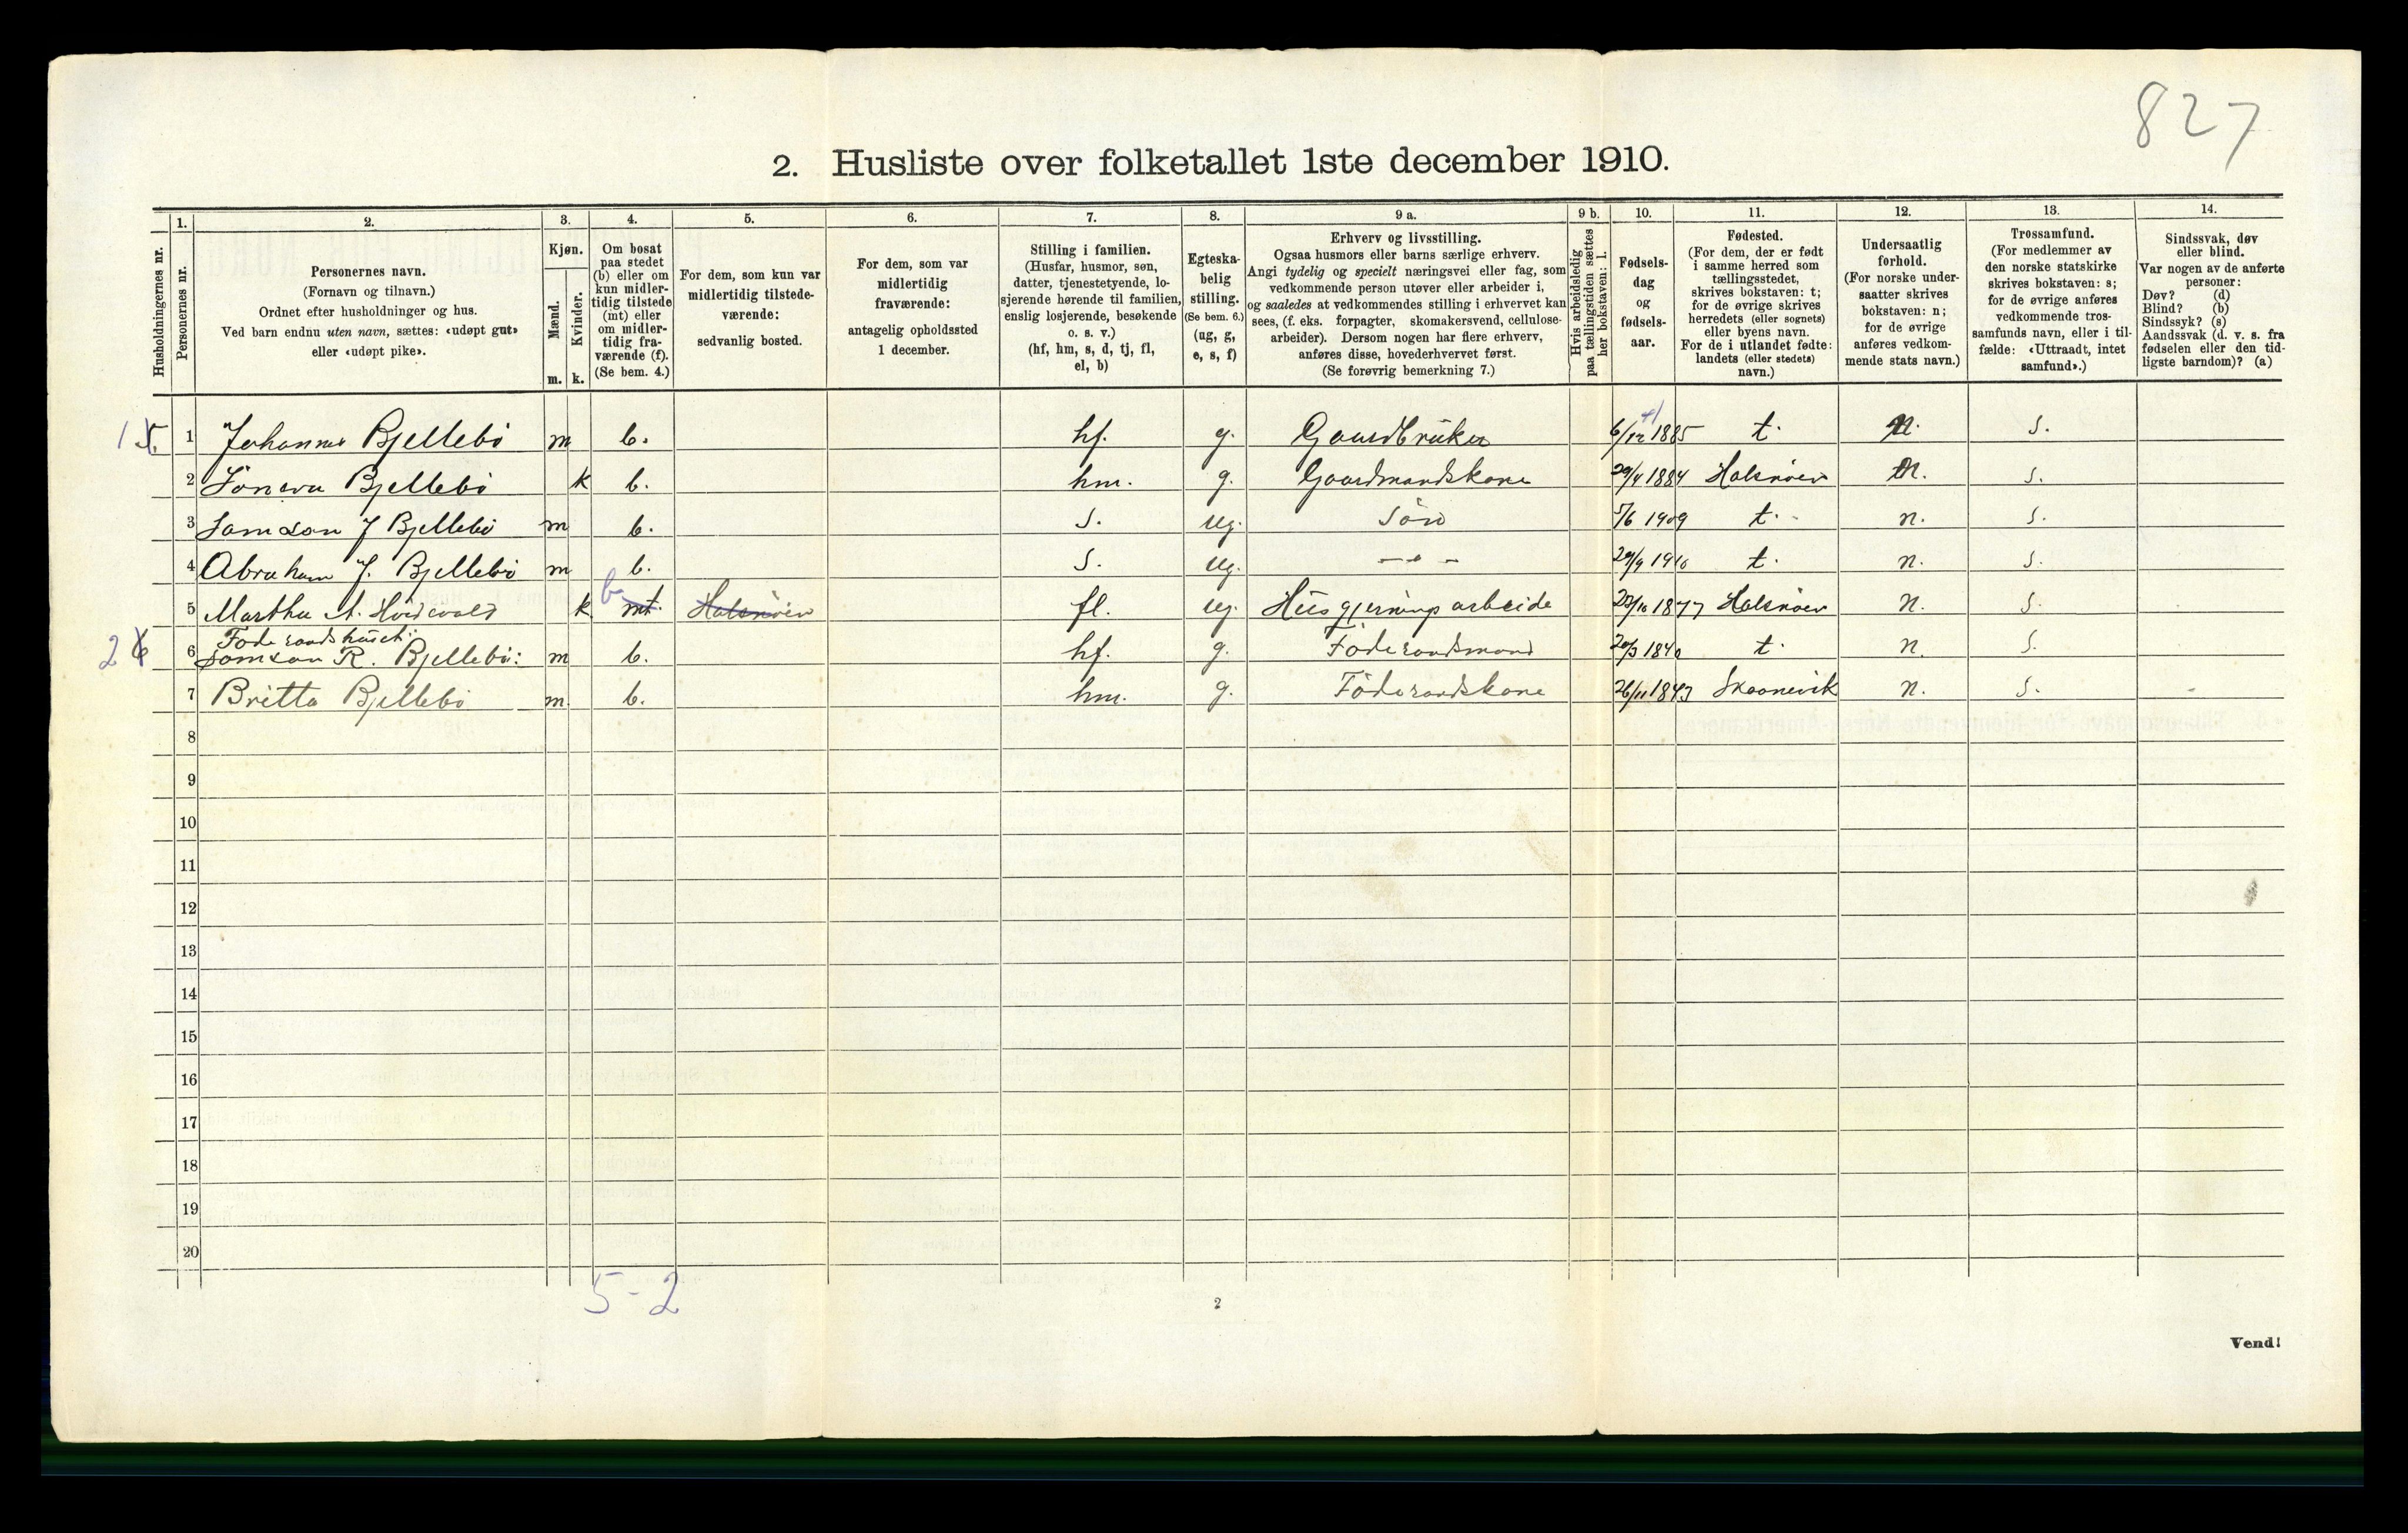 827
2. Husliste over folketallet 1ste december 1910.
Husholdningernes nr.
1. Personernes nr.
2. Personernes navn. (Fornavn og tilnavn.) Ordnet efter husholdninger og hus. Ved barn endnu uten navn, sættes: «udøpt gut» eller «udøpt pike».
3. Kjøn. Mænd. m. Kvinder. k.
4. Om bosat paa stedet (b) eller om kun midler-tidig tilstede (mt) eller om midler-tidig fra-værende (f). (Se bem. 4.)
5. For dem, som kun var midlertidig tilstede-værende: sedvanlig bosted.
6. For dem, som var midlertidig fraværende: antagelig opholdssted 1 december.
7. Stilling i familien. (Husfar, husmor, søn, datter, tjenestetyende, lo-sjerende hørende til familien, enslig losjerende, besøkende o. s. v.) (hf, hm, s, d, tj, fl, el, b)
8. Egteska-belig stilling. (Se bem. 6.) (ug, g, e, s, f)
9 a. Erhverv og livsstilling. Ogsaa husmors eller barns særlige erhverv. Angi tydelig og specielt næringsvei eller fag, som vedkommende person utøver eller arbeider i, og saaledes at vedkommendes stilling i erhvervet kan sees, (f. eks. forpagter, skomakersvend, cellulose-arbeider). Dersom nogen har flere erhverv, anføres disse, hovederhvervet først. (Se forøvrig bemerkning 7.)
9 b. Hvis arbeidsledig paa tællingstiden sættes her bokstaven: l.
10. Fødsels-dag og fødsels-aar.
11. Fødested. (For dem, der er født i samme herred som tællingsstedet, skrives bokstaven: t; for de øvrige skrives herredets (eller sognets) eller byens navn. For de i utlandet fødte: landets (eller stedets) navn.)
12. Undersaatlig forhold. (For norske under-saatter skrives bokstaven: n; for de øvrige anføres vedkom-mende stats navn.)
13. Trossamfund. (For medlemmer av den norske statskirke skrives bokstaven: s; for de øvrige anføres vedkommende tros-samfunds navn, eller i til-fælde: «Uttraadt, intet samfund».)
14. Sindssvak, døv eller blind. Var nogen av de anførte personer: Døv? (d) Blind? (b) Sindssyk? (s) Aandssvak (d. v. s. fra fødselen eller den tid-ligste barndom)? (a)
1 1 Johannes Bjellebö m b. hf. g. Gaardbruker 6/12 1885 t. n. s.
2 Söneva Bjellebö k b. hm. g. Gaardmandskone 29/4 1884 Halsnöen n. s.
3 Samson J Bjellebö m b. s. ug. Sön 5/6 1909 t. n. s.
4 Abraham J. Bjellebö m b. s. ug. - " - 29/9 1910 t. n. s.
5 Martha A. k b mt. Halsnöen fl. ug. Husgjernings arbeide 1877 Halsnöen n. s.
Föderaadshuset:
2 6 Samson R. Bjellebö: m b. hf. g. Föderaadsmand 20/3 1840 t. n. s.
7 Britta Bjellebö m. b. hm. g. Föderaadskone 26/11 1843 Skaanevik n. s. -
8
9
10
11
12
13
14
15
16
17
18
19
20
5-2
2
Vend!